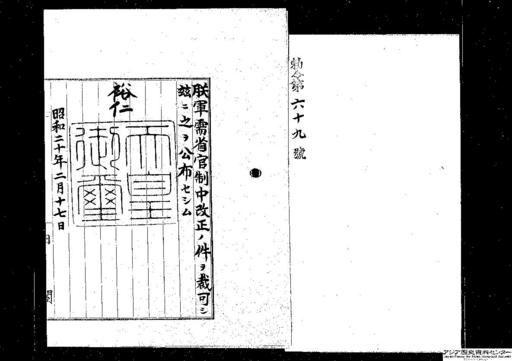 勅令第六十九號
朕軍需省官制中改正ノ件ヲ裁可シ
玆ニ之ヲ公布セシム
裕仁
天皇御璽
昭和二十年二月十七日
内閣
アジア歴史資料センター
Japan Center for Asian Historical Records